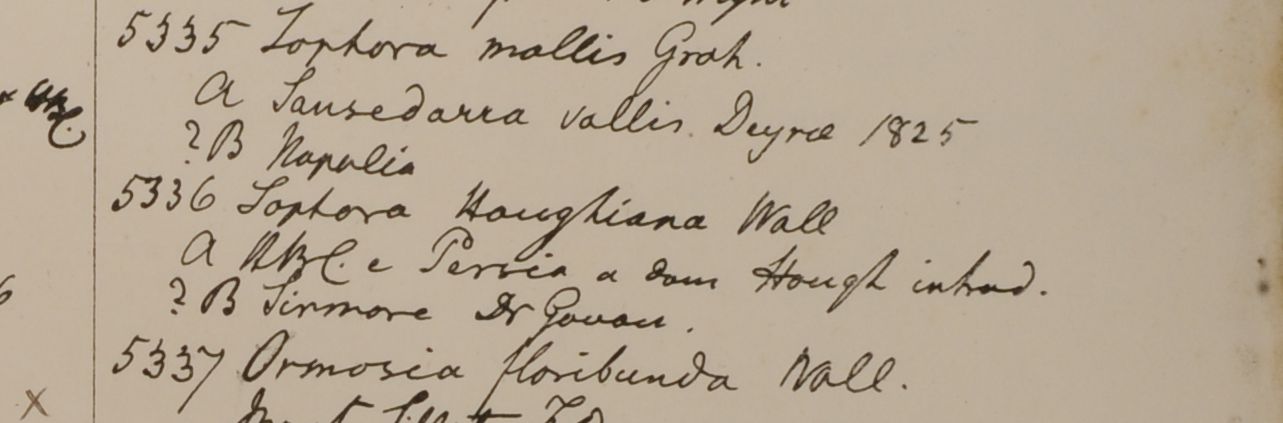 5335 Sophora mollis Grah.
A Sansedarra vallis Deyræ 1825
? B Napalia
5336 Sophora Houghiana Wall
A HBC. e Persia a dom Hough introd.
? B Sirmore Dr Govan.
5337 Ormosia floribunda Wall.
X